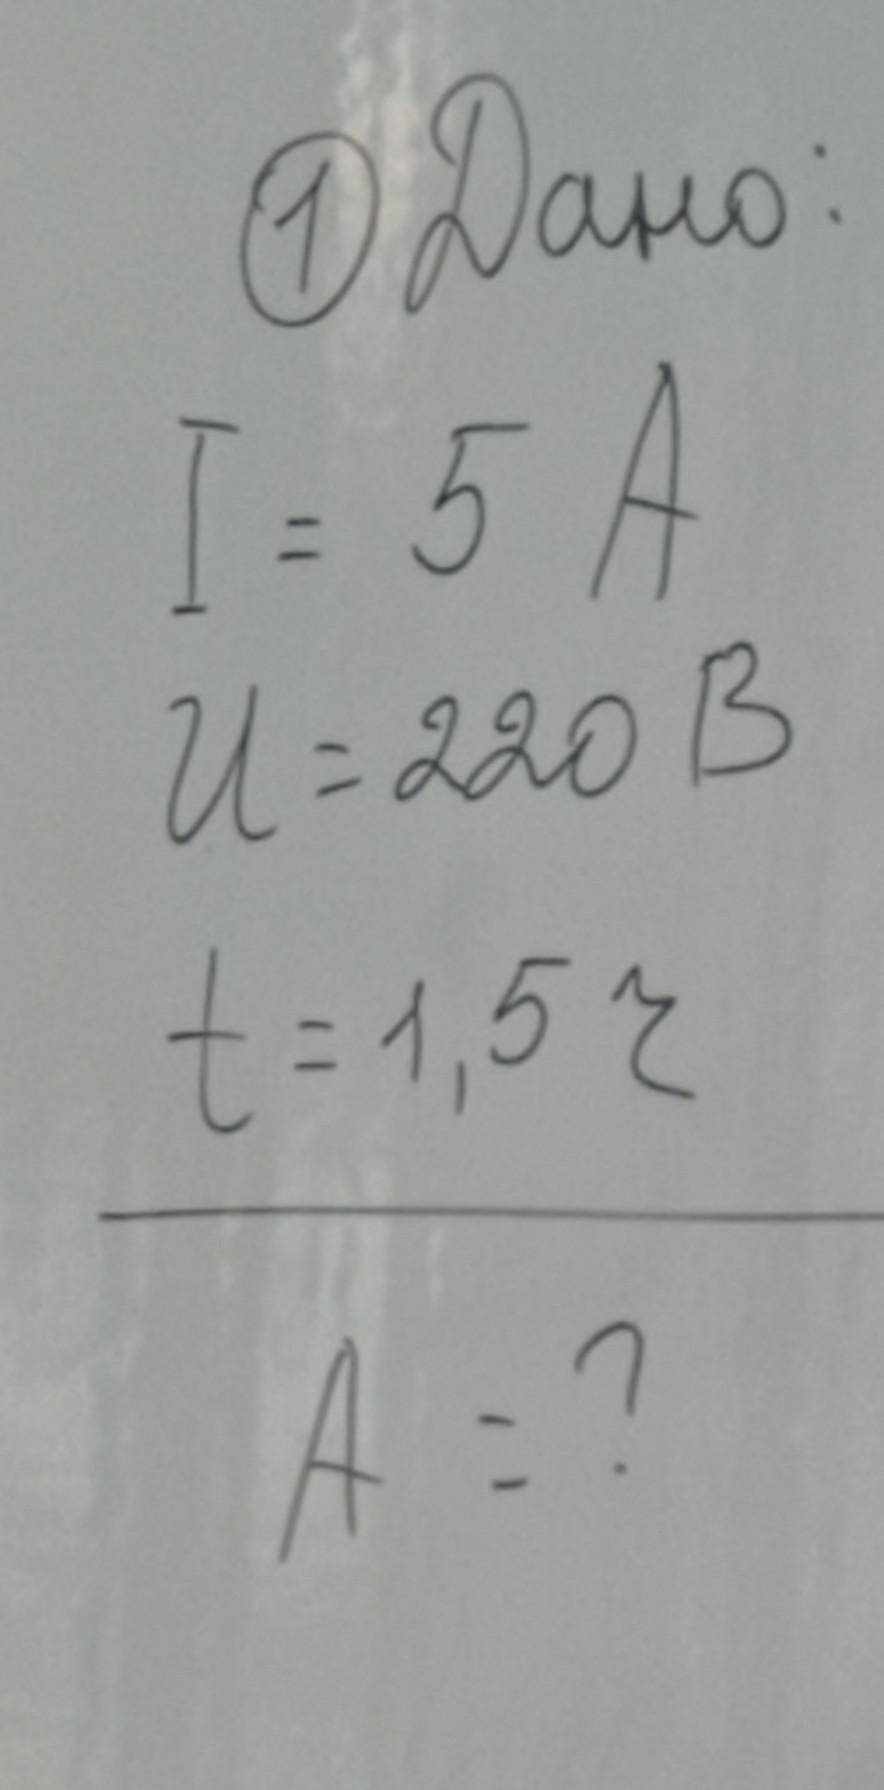 ① Дано:
I = 5 А
U = 220 В
t = 1,5 ч
A = ?